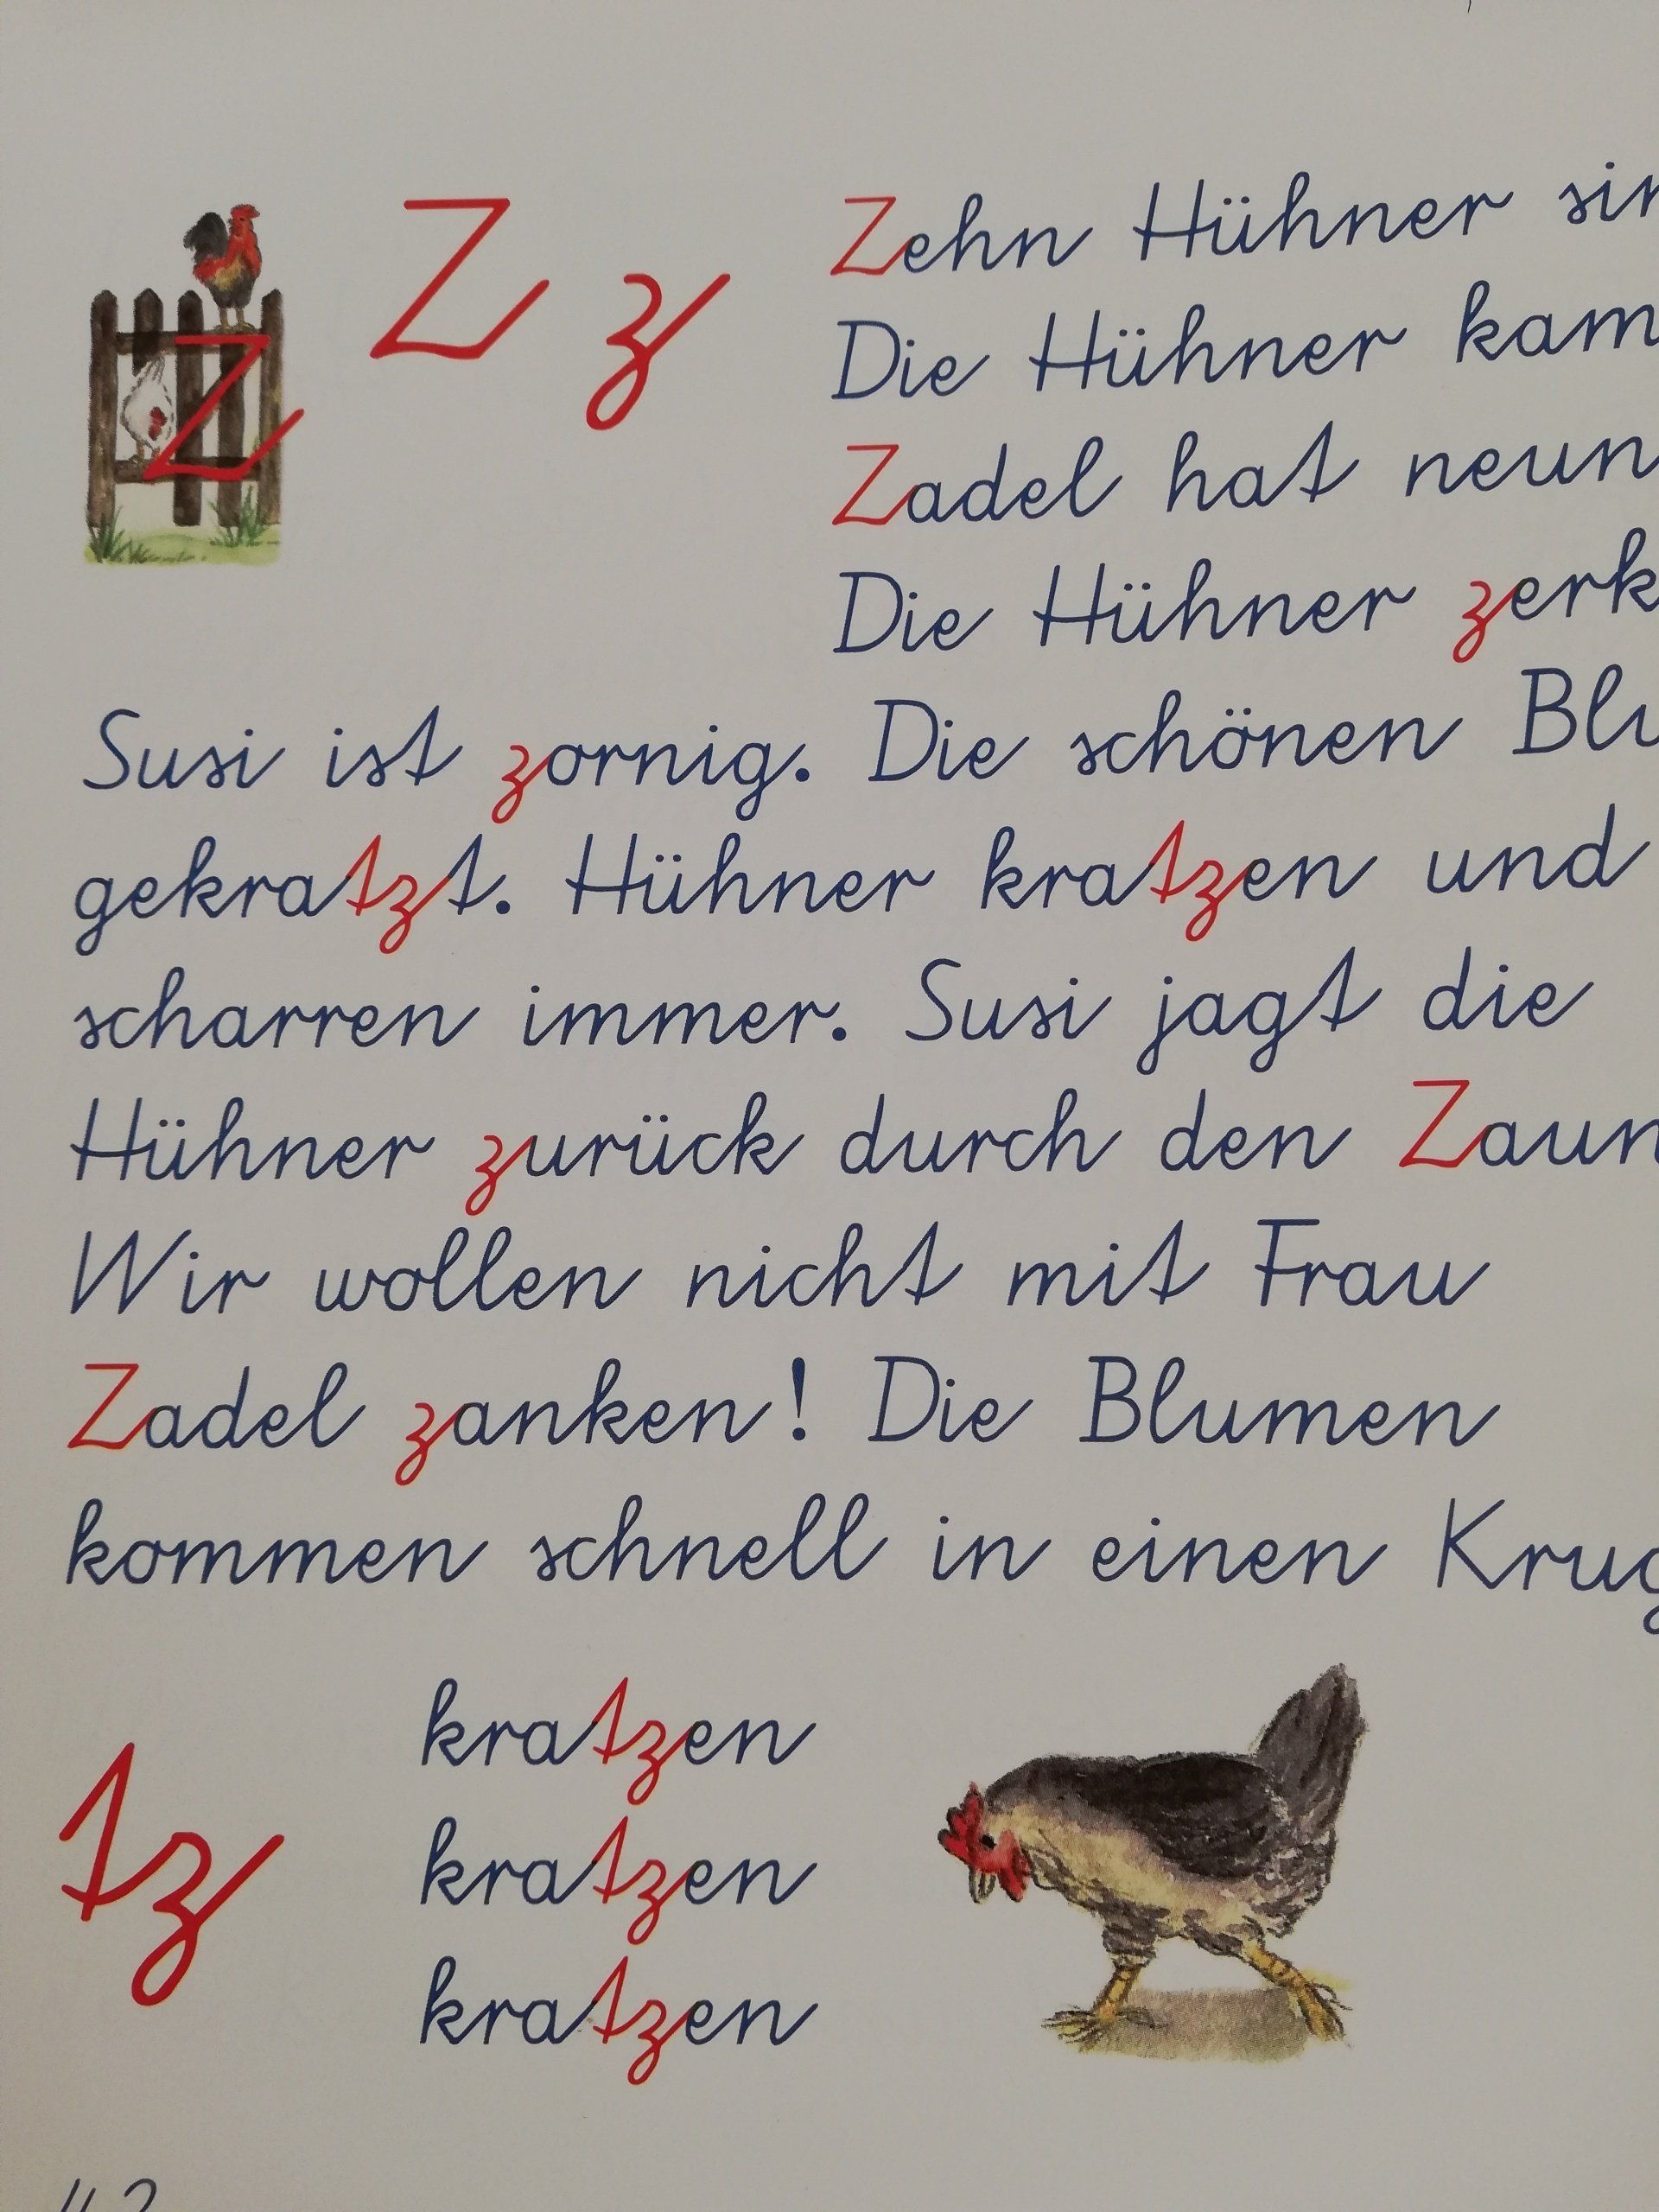 Z
Z z
Zehn Hühner
Die Hühner
Zadel hat neun
Die Hühner
Susi ist zornig. Die schönen
gekratzt. Hühner kratzen und
scharren immer. Susi jagt die
Hühner zurück durch den Zaun
Wir wollen nicht mit Frau
Zadel zanken! Die Blumen
kommen schnell in einen Krug
tz
kratzen
kratzen
kratzen